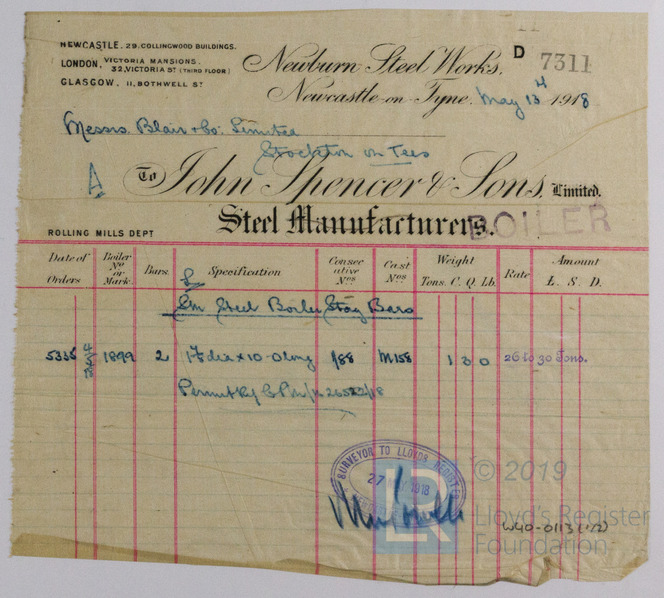 NEWCASTLE. 29. COLLINGWOOD BUILDINGS.
LONDON. VICTORIA MANSIONS.
32, VICTORIA ST (THIRD FLOOR)
GLASGOW, 11, BOTHWELL ST
Newburn Steel Works.
D 7311
Newcastle-on Tyne. May 13th 1918
Messrs. Blair & Co: Limited
Stockton on Tees
To John Spencer & Sons, Limited.
Steel Manufacturers.
BOILER
ROLLING MILLS DEPT
Date of Orders
Boiler No or Mark.
Bars.
Specification
Consecutive Nos
Cast Nos
Weight
Tons. C. Q. Lb.
Rate
Amount
£. S. D.
Sm Steel Boiler Stay Bars
1899 2 dia x 10-0 long 1/88 M158 1 3 0 26 to 30 Tons.
SURVEYOR TO LLOYDS REGISTER
27 1918
LR
© 2019
Lloyd's Register
Foundation
W40-0113 (1/2)